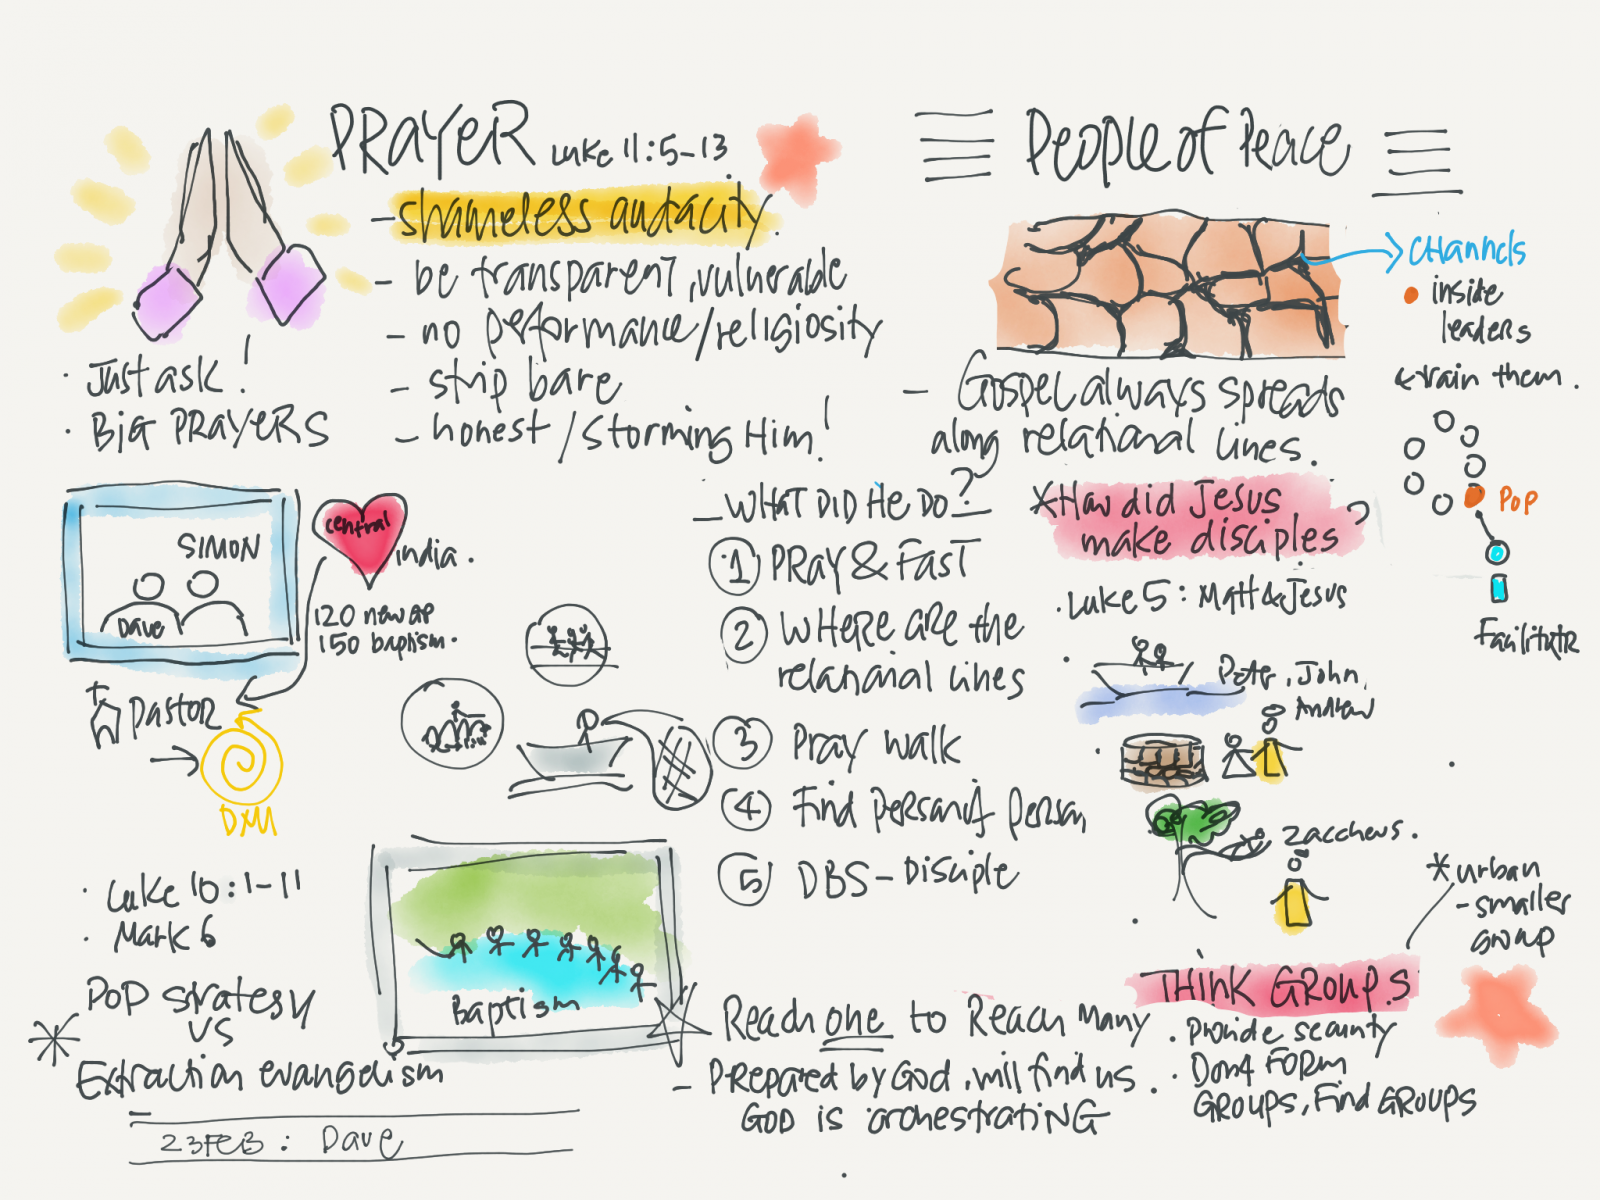 PRAYER Luke 11:5-13
- shameless audacity
- be transparent, vulnerable
- no performance/religiosity
- strip bare
- honest/storming Him!
· Just ask!
· BIG PRAYERS
SIMON
Dave
central
india.
120 new gp
150 baptism.
Pastor
DMM
· Luke 10:1-11
· Mark 6
POP strategy
VS
Extraction evangelism
23 FEB: Dave
Baptism
People of Peace
CHANNELS
inside
leaders
train them.
POP
Facilitatr
- Gospel always spreads
along relational lines.
- WHAT DID HE DO?
1 PRAY & FAST
2 WHERE ARE the
relational lines
3 Pray walk
4 Find person of person
5 DBS - Disciple
*How did Jesus
make disciples?
· Luke 5: Matt & Jesus
Peter, John,
Andrew
Zaccheus.
* urban
- smaller
group
THINK GROUPS
· Provide security
· Dont FORM
GROUPS, Find GROUPS
Reach one to Reach Many
- PREPARED by God, will find us.
GOD is orchestrating